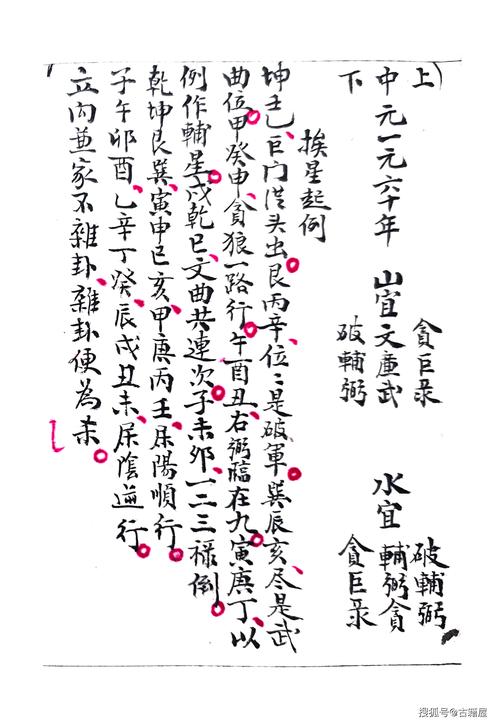 上　貪巨录　破輔弼
中元一元六十年　山宜文廉武　水宜　輔弼貪
下　破輔弼　貪巨录
挨星起例
坤壬乙、巨门從头出。艮丙辛、位〻是破軍。巽辰亥、尽是武
曲位。甲癸申、貪狼一路行。午酉丑、右弼臨在九。寅庚丁、以
例作輔星。戌乾巳、文曲共連次。子未卯、一二三禄倒。
乾坤艮巽、寅申巳亥、甲庚丙壬、屬陽順行。
子午卯酉、乙辛丁癸、辰戌丑未、屬陰逆行。
立向兼家不雜卦、雜卦便為杀。
搜狐号@古籍屋